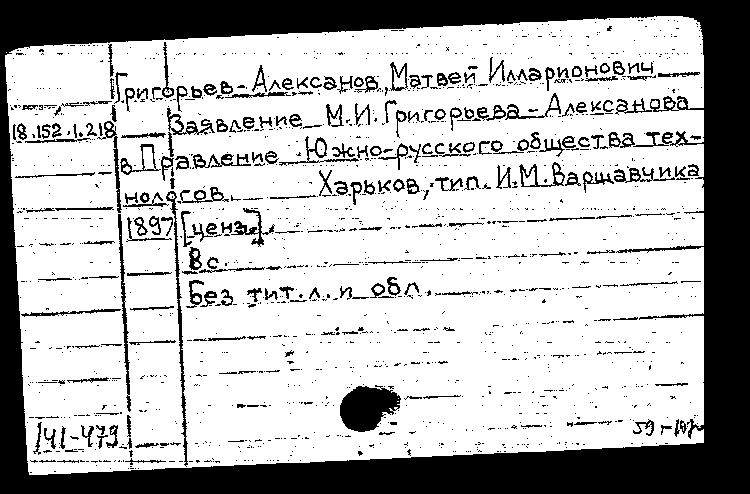 Григорьев-Алексанов, Матвей Илларионович
18.152.1.218 Заявление М.И.Григорьева-Алексанова
в Правление Южно-русского общества тех-
нологов. Харьков, тип. И.М.Варшавчика,
1897 [ценз.].
8 с.
Без тит.л. и обл.
141-479